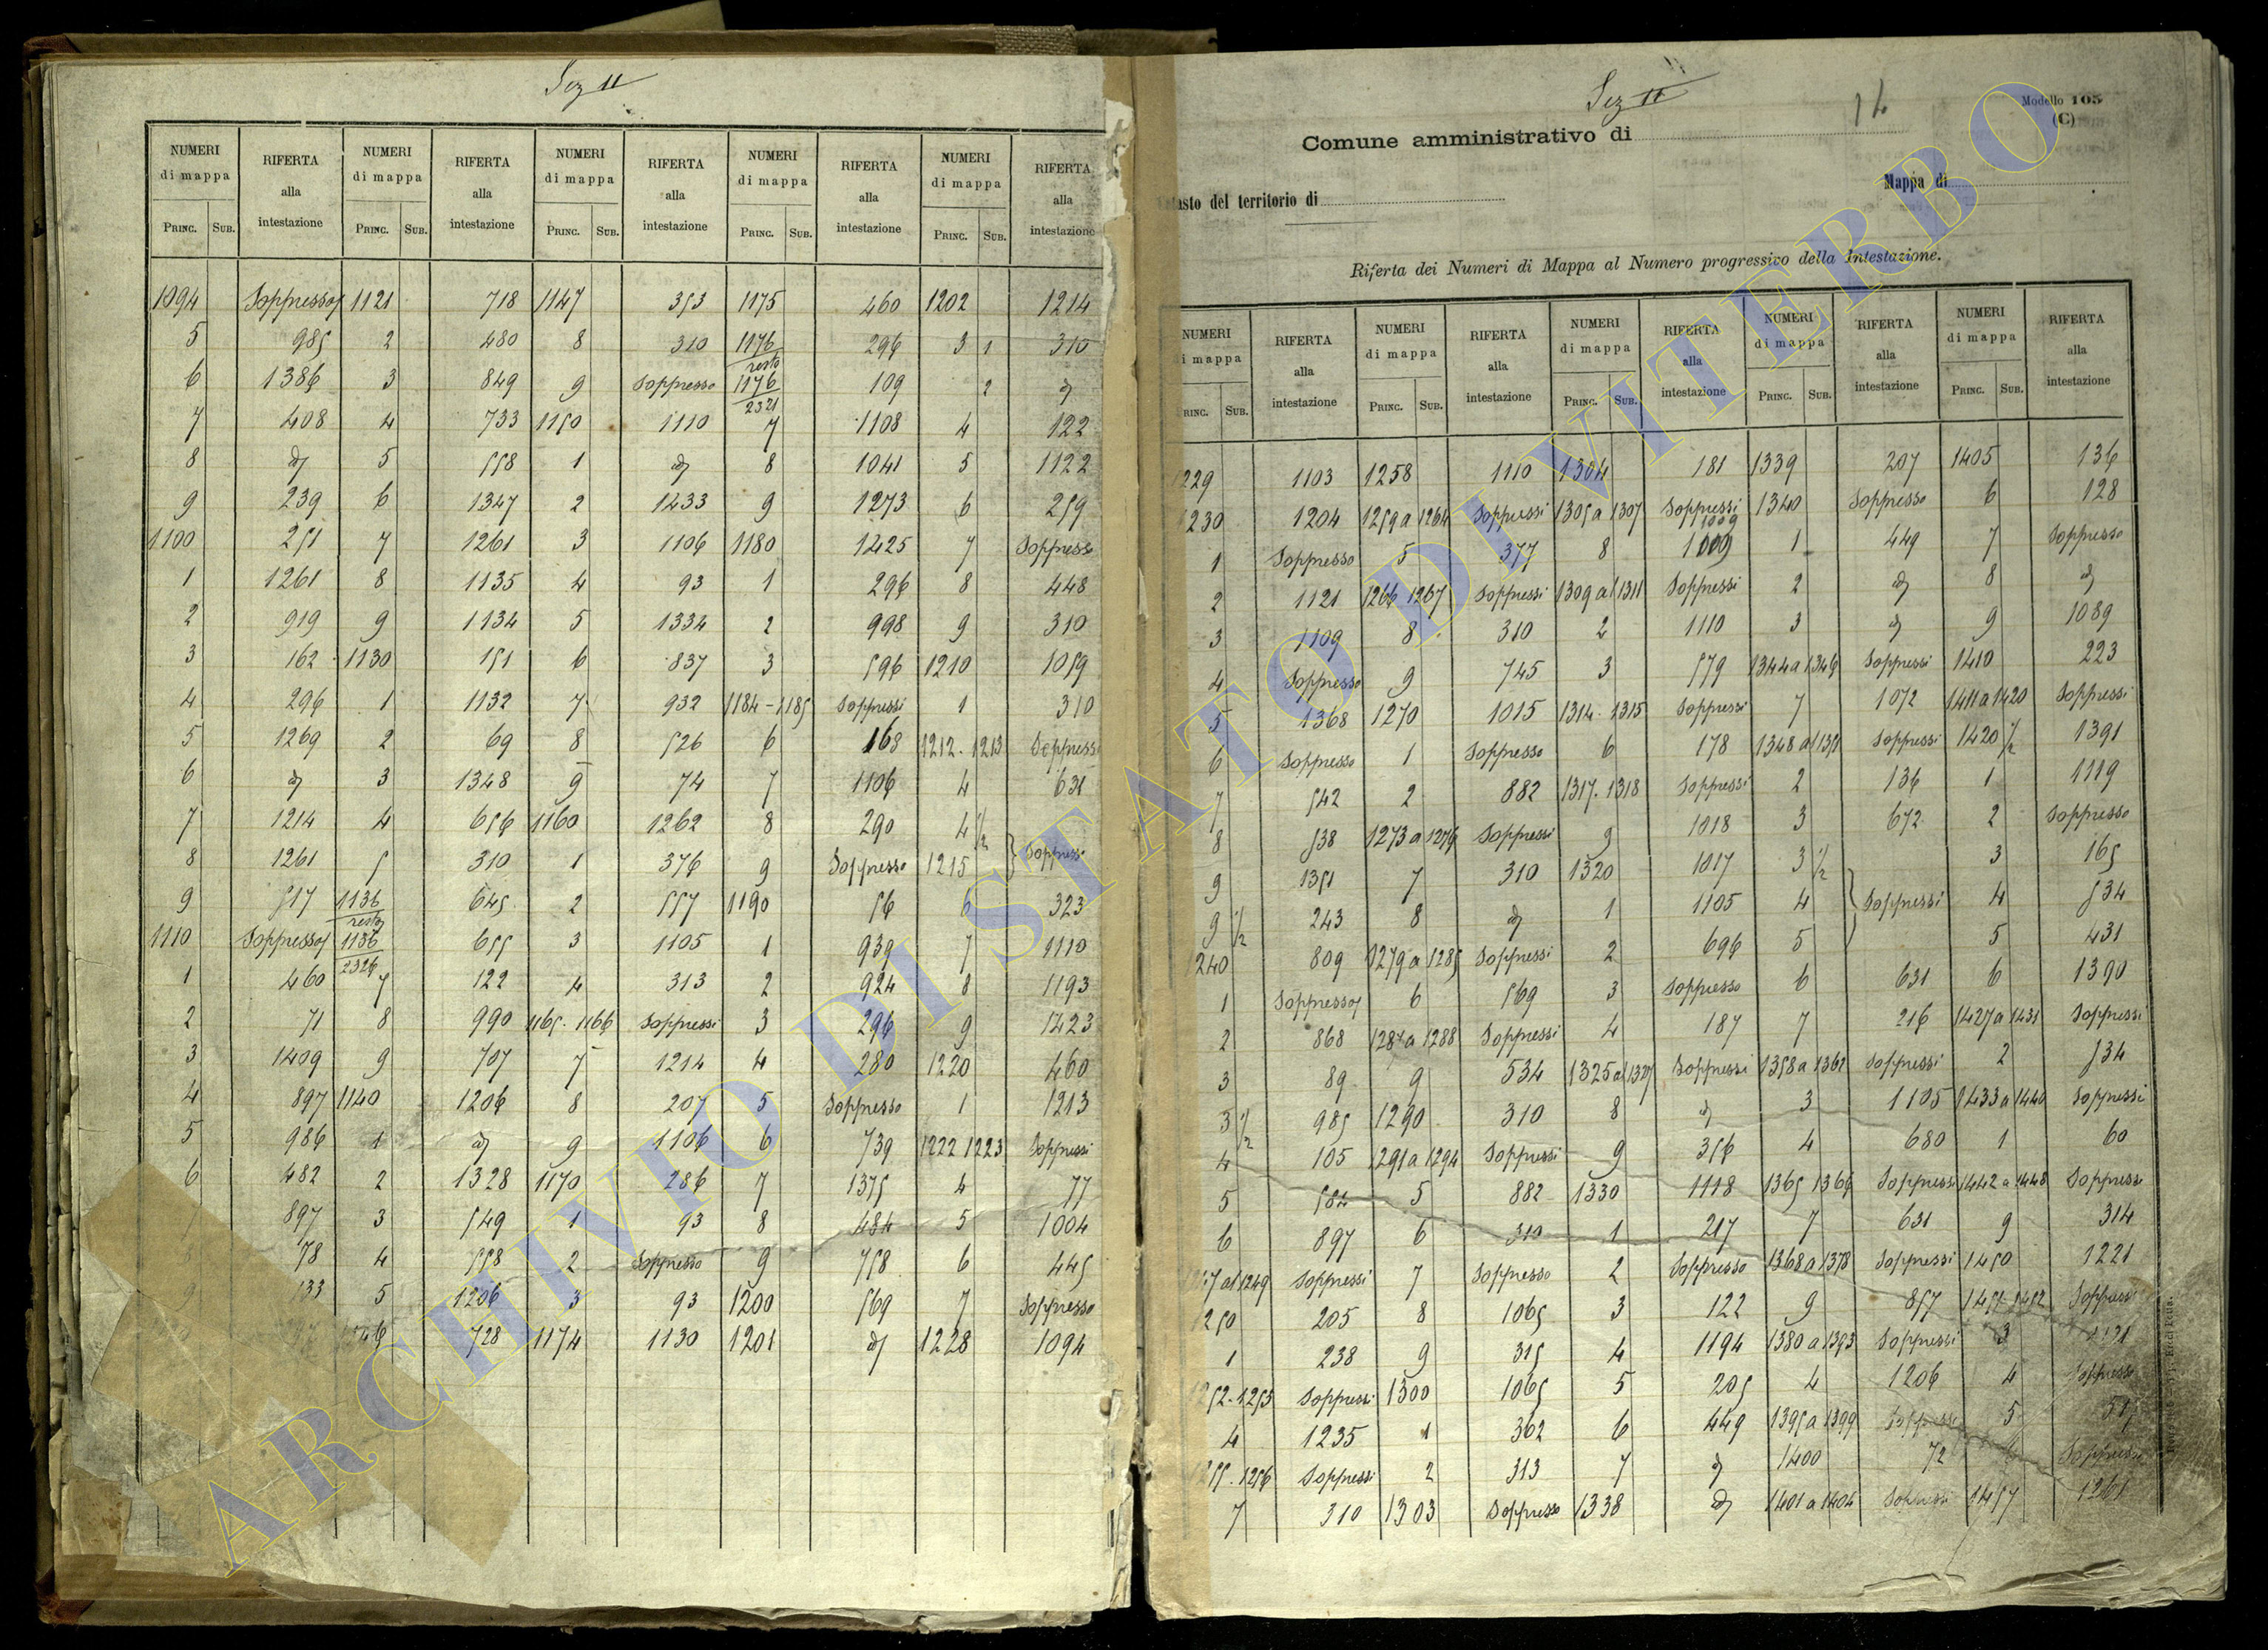 Sez II
NUMERI di mappa RIFERTA alla intestazione NUMERI di mappa RIFERTA alla intestazione NUMERI di mappa RIFERTA alla intestazione NUMERI di mappa RIFERTA alla intestazione NUMERI di mappa RIFERTA alla intestazione
PRINC. SUB. PRINC. SUB. PRINC. SUB. PRINC. SUB. PRINC. SUB.
1094 Soppresso 1121 718 1147 353 1175 460 1202 1214
5 985 2 480 8 310 1176 resto 296 3 1 310
6 1386 3 849 9 Soppresso 1176 2321 109 2 d
7 408 4 733 1150 1110 7 1108 4 122
8 d 5 558 1 d 8 1041 5 1122
9 239 6 1347 2 1433 9 1273 6 259
1100 251 7 1261 3 1106 1180 1425 7 Soppresso
1 1261 8 1135 4 93 1 296 8 448
2 919 9 1134 5 1334 2 998 9 310
3 162 1130 151 6 837 3 596 1210 1059
4 296 1 1132 7 932 1184-1185 Soppressi 1 310
5 1269 2 69 8 526 6 168 1212.1213 Soppressi
6 d 3 1348 9 74 7 1106 4 631
7 1214 4 656 1160 1262 8 290 4 1/2
8 1261 5 310 1 376 9 Soppresso 1215 Soppressi
9 517 1136 resto 645 2 557 1190 56 6 323
1110 Soppresso 1136 2326 655 3 1105 1 939 7 1110
1 460 7 122 4 313 2 924 8 1193
2 71 8 990 1165.1166 Soppressi 3 296 9 1423
3 1409 9 707 7 1214 4 280 1220 460
4 897 1140 1206 8 207 5 Soppresso 1 1213
5 986 1 d 9 1106 6 739 1222 1223 Soppressi
6 482 2 1328 1170 286 7 1375 4 77
897 3 549 1 93 8 484 5 1004
78 4 558 2 Soppresso 9 758 6 445
133 5 1206 3 93 1200 569 7 Soppresso
728 1174 1130 1201 d 1228 1094
Sez II
14
Modello 105
(C)
Comune amministrativo di
asto del territorio di Mappa di
Riferta dei Numeri di Mappa al Numero progressivo della Intestazione.
NUMERI di mappa RIFERTA alla intestazione NUMERI di mappa RIFERTA alla intestazione NUMERI di mappa RIFERTA alla intestazione NUMERI di mappa RIFERTA alla intestazione NUMERI di mappa RIFERTA alla intestazione
RINC. SUB. PRINC. SUB. PRINC. SUB. PRINC. SUB. PRINC. SUB.
1229 1103 1258 1110 1304 181 1339 207 1405 136
1230 1204 1259 a 1264 Soppressi 1305 a 1307 Soppressi 1340 Soppresso 6 128
1 Soppresso 5 377 8 1009 1009 1 449 7 Soppresso
2 1121 1266 1267 Soppressi 1309 al 1311 Soppressi 2 d 8 d
3 1109 8 310 2 1110 3 d 9 1089
4 Soppresso 9 745 3 579 1344 a 1346 Soppressi 1410 223
5 1368 1270 1015 1314.1315 Soppressi 7 1072 1411 a 1420 Soppressi
6 Soppresso 1 Soppresso 6 178 1348 al 1351 Soppressi 1420 1/2 1391
7 542 2 882 1317.1318 Soppressi 2 136 1 1119
8 538 1273 a 1276 Soppressi 9 1018 3 672 2 Soppresso
9 1351 7 310 1320 1017 3 1/2 3 165
9 1/2 243 8 d 1 1105 4 Soppressi 4 534
1240 809 1279 a 1285 Soppressi 2 696 5 5 431
1 Soppresso 6 569 3 Soppresso 6 631 6 1390
2 868 1287 a 1288 Soppressi 4 187 7 216 1427 a 1431 Soppressi
3 89 9 534 1325 al 1327 Soppressi 1358 a 1362 Soppressi 2 534
3 1/2 985 1290 310 8 d 3 1105 1433 a 1440 Soppressi
4 105 1291 a 1294 Soppressi 9 356 4 680 1 60
5 584 5 882 1330 1118 1365 1366 Soppressi 1442 a 1448 Soppressi
6 897 6 310 1 217 7 631 9 314
al 1249 Soppressi 7 Soppresso 2 Soppresso 1368 a 1378 Soppressi 1450 1221
1250 205 8 1065 3 122 9 857 1451-1452 Soppressi
1 238 9 315 4 1194 1380 a 1393 Soppressi 3
1252.1253 Soppressi 1300 1065 5 205 4 1206 4 Soppresso
4 1235 1 362 6 449 1395 a 1399 Soppressi 5
1255.1256 Soppressi 2 313 7 d 1400 72 Soppresso
7 310 1303 Soppresso 1338 d 1401 a 1404 Soppressi 1457 1261
ARCHIVIO DI STATO DI VITERBO